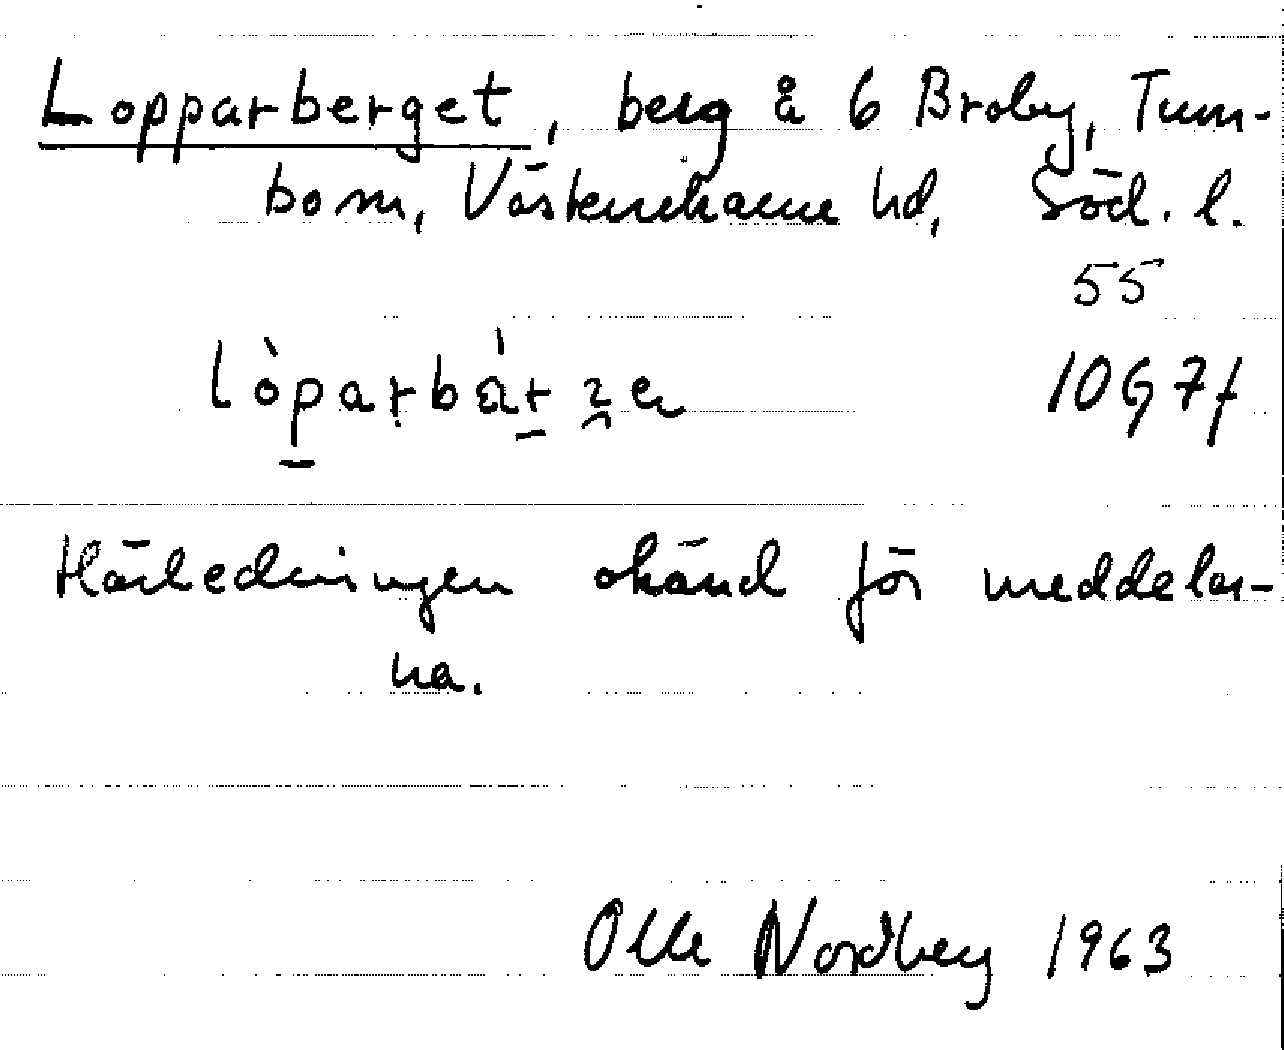 Lopparberget, berg å 6 Broby, Tum-
bom, Västerrekarne hd, Söd. l.
55
10G7f
Härledningen okänd för meddelar-
na.
Olle Nordberg 1963